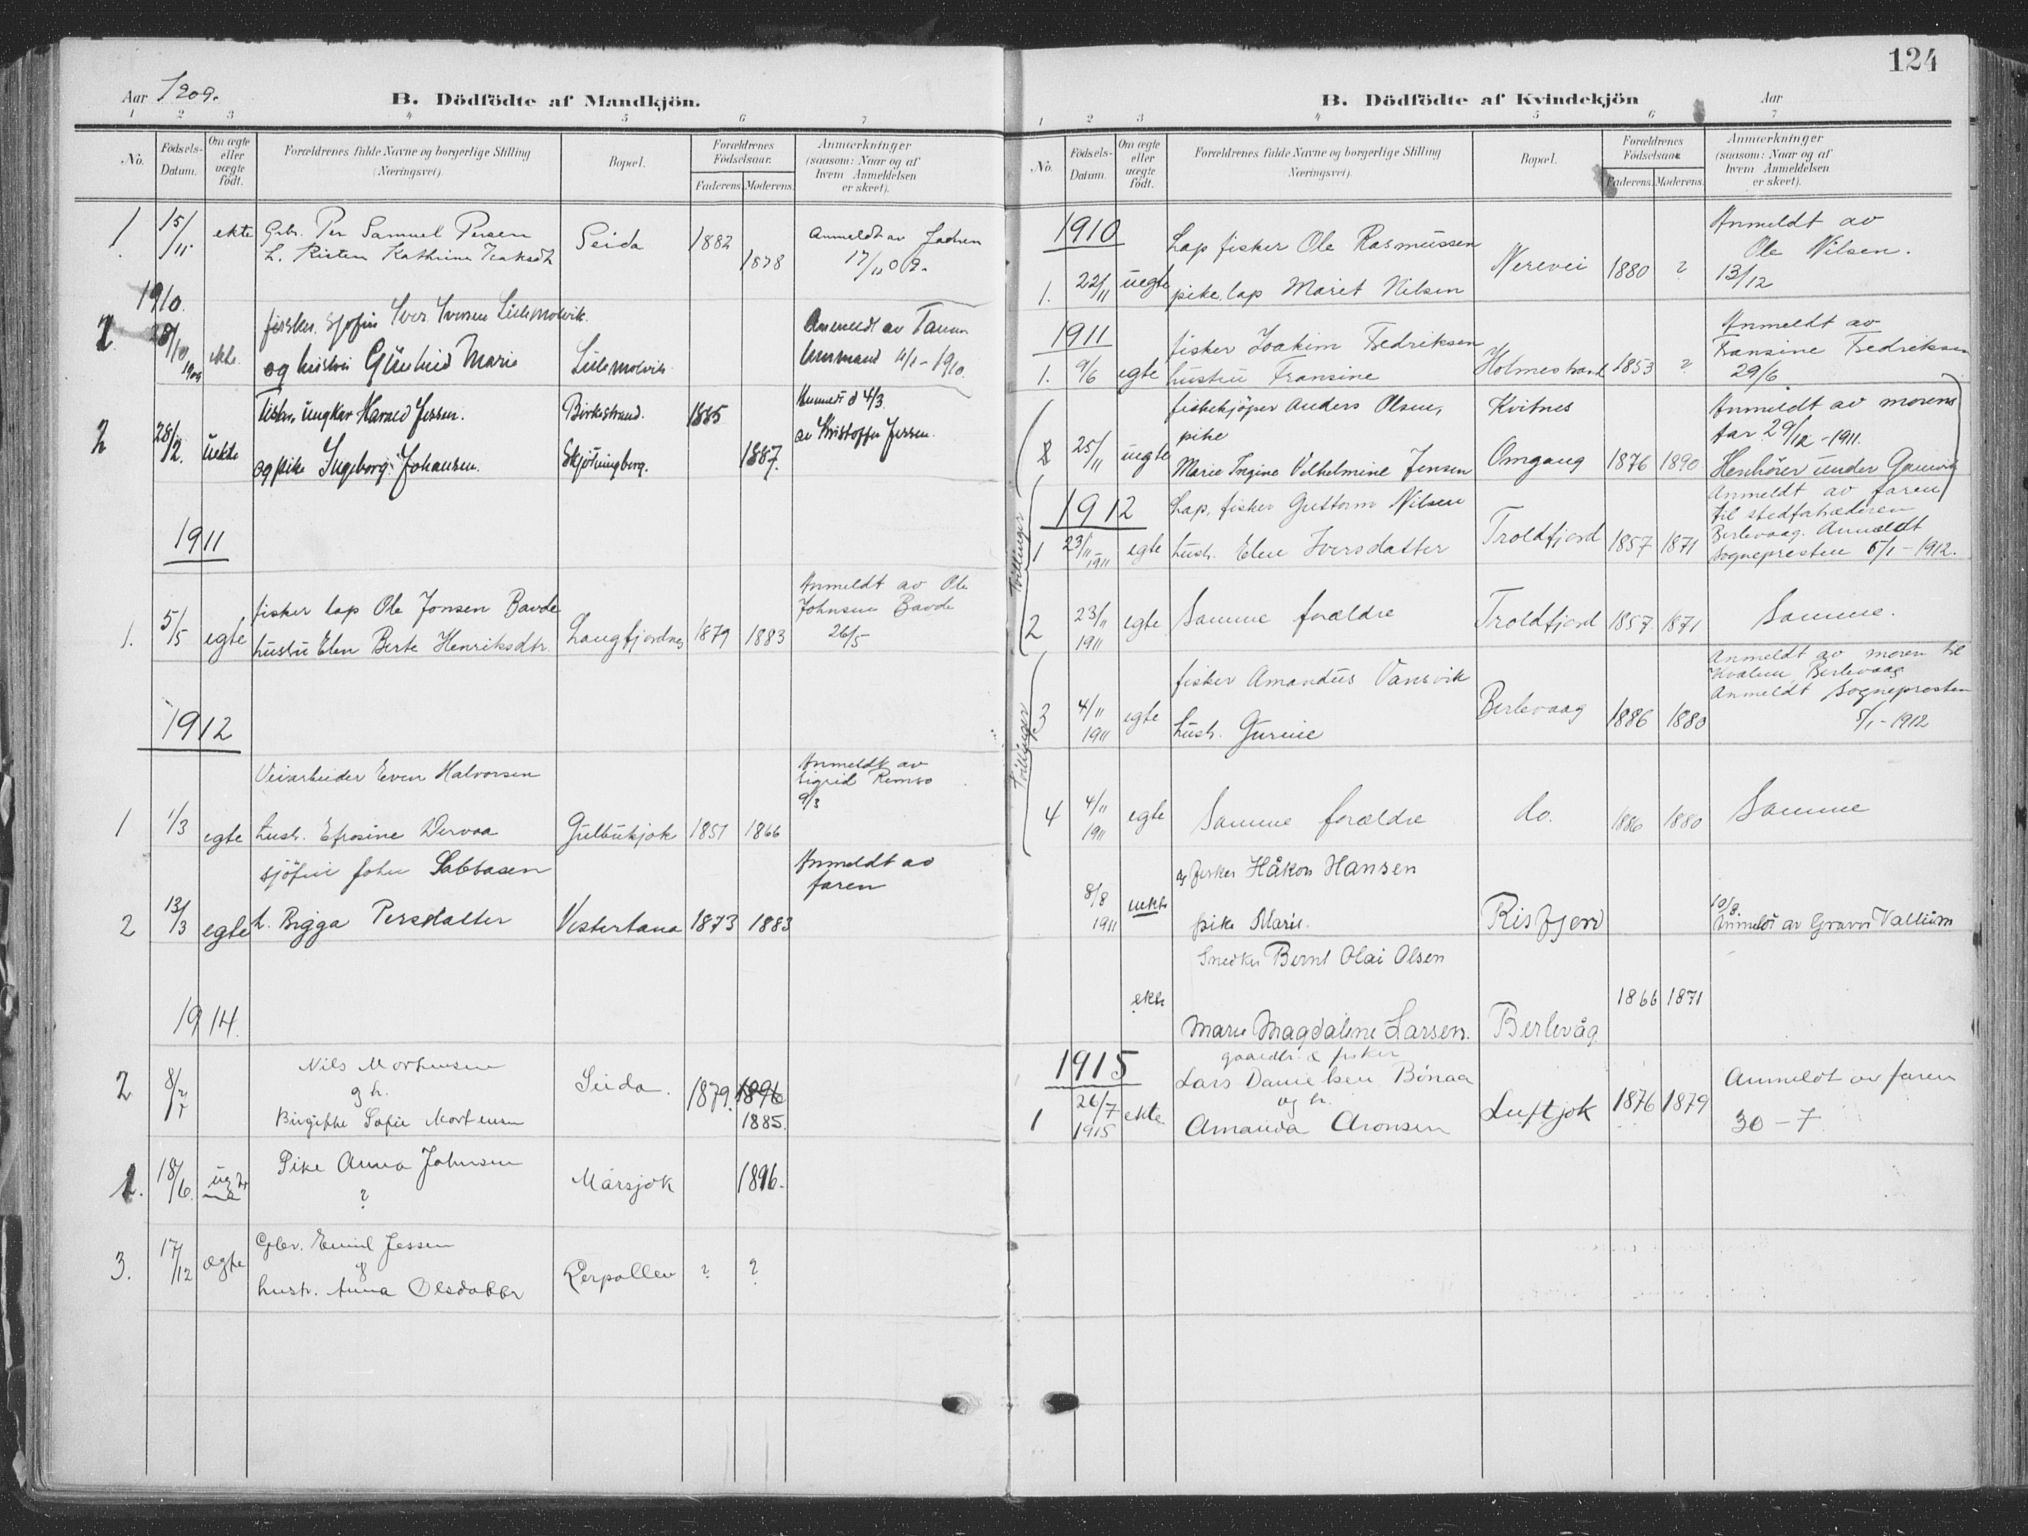 124
Aar 1909.
B. Dödfödte af Mandkjön.
1 2 3 4 5 6 7
No.
Födsels-Datum.
Om ægte eller uægte födt.
Forældrenes fulde Navne og borgerlige Stilling (Næringsvei).
Bopæl.
Forældrenes Födselsaar.
Faderens. Moderens.
Anmærkninger (saasom: Naar og af hvem Anmeldelsen er skeet).
1 15/11 ekte Gbr. Per Samuel Persen Seida 1882 Anmeldt av
h. Kirsten Kathrine 1878 17/11 09.
1910.
fisker, sjøfin Iver Iversen Lillemolvik Anmeldt av Tanem
28/10 1909 ekte. og hustru Gunhild Marie Lillemolvik 4/1-1910.
2 28/2. uekte Fisker, ungkar Harald Jessen. Birkestrand. 1885 Anmeldt 4/3.
og pike Ingeborg Johansen. Skjötningberg. 1887. av Kristoffer Jessen.
1911
fisker lap Ole Jonsen Bavde Anmeldt av Ole
1. 5/5 egte hustru Elen Berte Henriksdtr. Langfjordnes 1879 1883 Johnsen Bavde
26/5
1912
Veiarbeider Even Halvorsen Anmeldt av
Sigrid
9/3
1 1/3 egte hustr. Efrosine Dervaa Gulbukjok 1851 1866
sjöfin John Sabbasen Anmeldt av
faren
2 13/3 egte h. Bigga Persdatter Vestertana 1873 1883
1914.
Nils Mortensen
2 8/7 g h. Seida. 1879. 1896
Birgitte Sofie Mortensen 1885.
1. 18/6. Pike Anna Johnsen Måsjok 1896.
?
3. 17/12 ægte Gbr. Emil Jessen
&
hustr. Anna Olsdatter Lerpollen ? ?
B. Dödfödte af Kvindekjön
Aar
1 2 3 4 5 6 7
No.
Födsels-Datum.
Om ægte eller uægte födt.
Forældrenes fulde Navne og borgerlige Stilling (Næringsvei).
Bopæl.
Forældrenes Födselsaar.
Faderens. Moderens.
Anmærkninger (saasom: Naar og af hvem Anmeldelsen er skeet).
1910 Lap fisker Ole Rasmussen Anmeldt av
Ole Nilsen.
1. 22/11 uegte pike, lap Marit Nilsen Nerevei 1880 ? 13/12
1911 fisker Joakim Fedriksen Anmeldt av
Fransine Fedriksen
1. 9/6 egte hustru Fransine Holmestrand 1853 ? 29/6
fiskekjøper Anders Olsen, Kvitnes Anmeldt av morens
pike far 29/12-1911.
2 25/11 uegte Marie Regine Vilhelmine Jensen Omgang 1876 1890 Henhører under Gamvig
1912 Lap, fisker Guttorm Nilsen Anmeldt av faren
til stedfortræderen
Berlevaag. Anmeldt
1 23/11-1911 egte hustr. Elen Iversdatter Troldfjord 1857 1871 Sognepresten 5/1-1912.
Tvillinger
2 23/11 1911 egte Samme forældre Troldfjord 1857 1871 Samme.
fisker Amandus Vansvik Anmeldt av moren til
Berlevaag
Anmeldt Sognepresten
3 4/11 1911 egte hustr. Gurine Berlevaag 1886 1880 5/1-1912
Tvillinger
4 4/11 1911 egte Samme forældre do. 1886 1880 Samme
Fisker Håkon Hansen
8/8 1911 uekte pike Marie. Risfjord 10/8. Anmeldt av Gravør Vallum
Snedker Bernt Olai Olsen
ekte 1866 1871
Marie Magdalene Larsen. Berlevåg
1915 gaardbr. & fisker
Lars Danielsen Bönaa Anmeldt av faren
og h.
1 26/7 1915 ekte Amanda Aronsen Luftjok 1876 1879 30-7